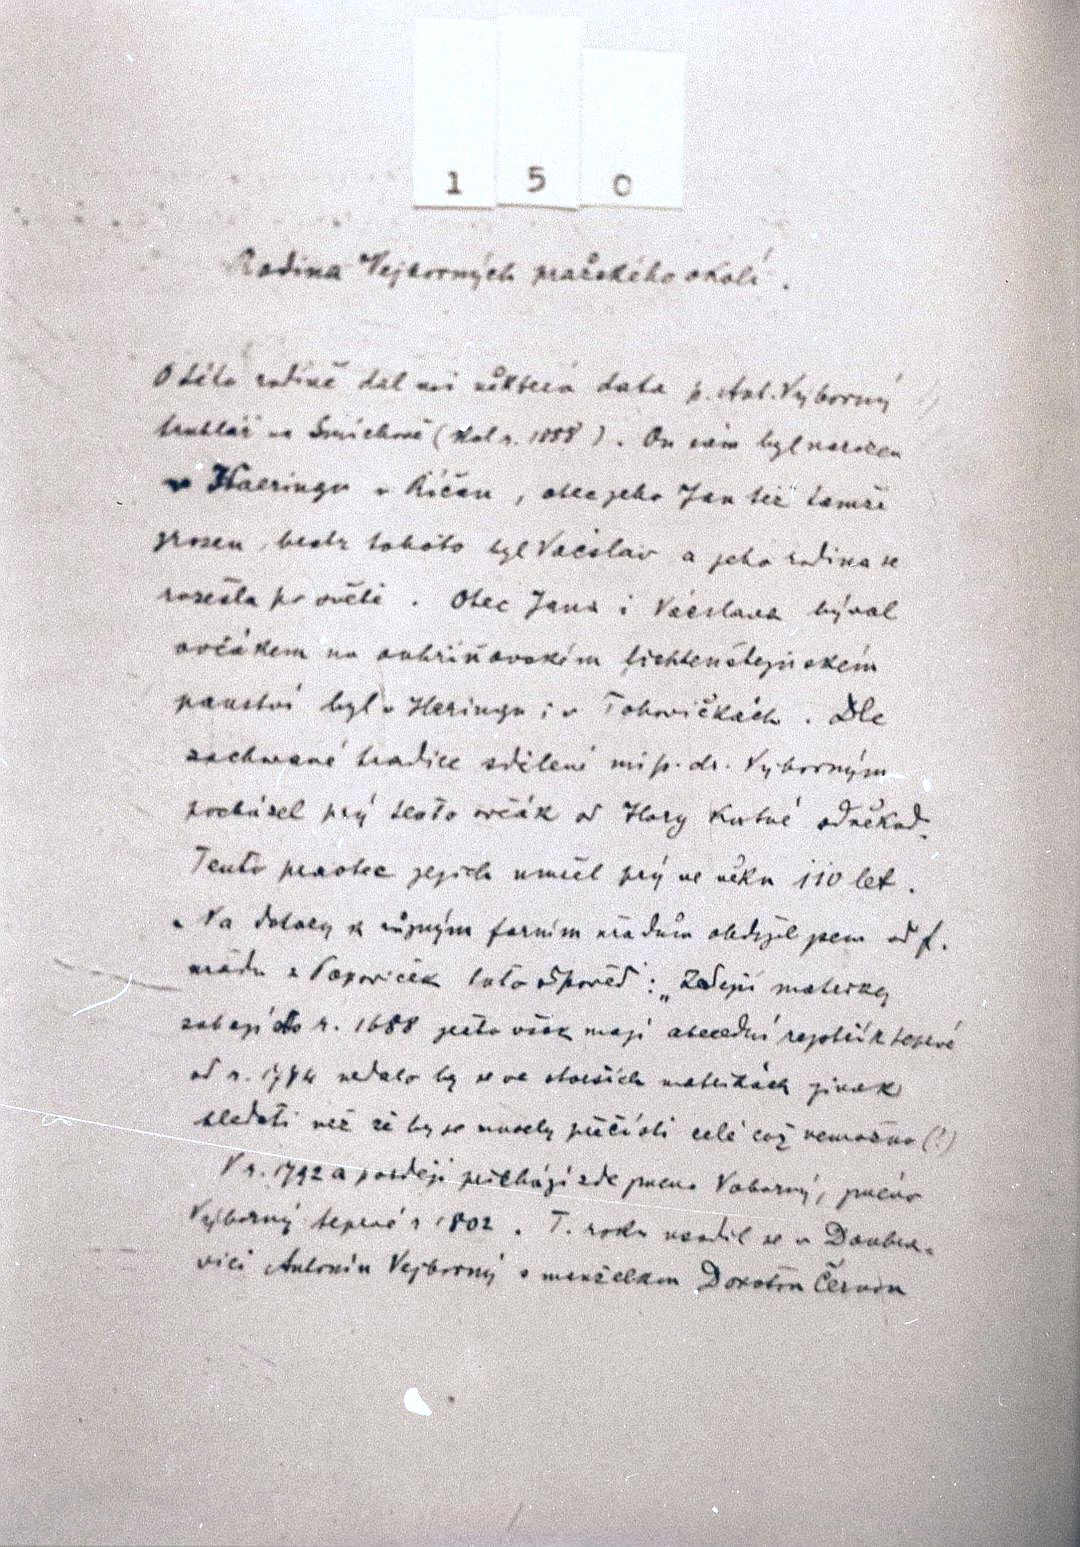 1 5 0
Rodina Vejborných pražského okolí.
O této rodině dal mi některá data p. Ant. Vyborný
truhlář na Smíchově (kol r. 1888). On sám byl narozen
v Haeringu u Říčan, otec jeho Jan též tamže
zrozen, bratr tohoto byl Václav a jeho rodina se
rozešla po světě. Otec Jana i Václava býval
ovčákem na ouhříňovském lichtenštejnském
panství byl v Heringu i v Tehovičkách. Dle
zachované tradice sdělené mi p. dr. Vyborným
pocházel prý tento ovčák od Hory Kutné odněkud.
Tento praotec jejich umřel prý ve věku 110 let.
Na dotazy k různým farním úřadům obdržel jsem od f.
úřadu z Popoviček tuto odpověď: „Zdejší matriky
sahají do r. 1688 ježto však mají abecední rejstřík teprvé
od r. 1784 nedalo by se ve starších matrikách jinak
hledati než že by se musely přečísti celé což nemožno (!)
V r. 1792 a později přichází zde pueno Vaborný, pueno
Vyborný teprvé r 1802. T. roku narodil se v Doubra-
vici Antonín Vejborný s manželkou Dorotou Černou